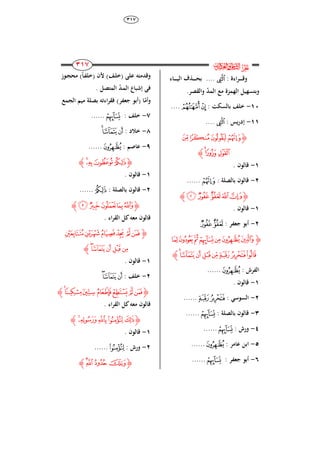 ٣١٧
٣١٧
وقدمته على (خلف) لأن (خلفا) محجوز
في إشباع المدّ المتصل .
وأمّا (أبو جعفر) فقراءته بصلة ميم الجمع
٧- خلف : نِّسَآئِهِم ......
٨- خلاد : أَن يَتَمَآسَّا
٩- عاصم : يُظَٰهِرُونَ ......
﴿ ذَٰلِكُمْ تُوعَظُونَ بِهِۦ ﴾
١- قالون .
٢- قالون بالصلة : ذَٰلِكُمُ ......
﴿ وَٱللَّهُ بِمَا تَعْمَلُونَ خَبِيرٌ ٣ ﴾
قالون معه كل القراء .
﴿ فَمَن لَّمْ يَجِدْ فَصِيَامُ شَهْرَيْنِ مُتَتَابِعَيْنِ
مِن قَبْلِ أَن يَتَمَآسَّا ﴾
١- قالون .
٢- خلف : أَن يَتَمَآسَّا
﴿ فَمَن لَّمْ يَسْتَطِعْ فَإِطْعَامُ سِتِّينَ مِسْكِينًا ﴾
قالون معه كل القراء .
﴿ ذَٰلِكَ لِتُؤْمِنُوا۟ بِٱللَّهِ وَرَسُولِهِۦ ﴾
١- قالون .
٢- ورش : لِتُؤْمِنُوا۟ ......
﴿ وَتِلْكَ حُدُودُ ٱللَّهِ ﴾
وقراءة : ٱلَّٰٓـِٔى .... بحذف اليـاء
وبتسهيل الهمزة مع المدّ والقصر.
١٠- خلف بالسكت : إِنْ أُمَّهَٰتُهُمْ ....
١١- إدريس : ٱلَّٰٓـِٔى ....
﴿ وَإِنَّهُمْ لَيَقُولُونَ مُنكَرًا مِّنَ
ٱلْقَوْلِ وَزُورًا ﴾
١- قالون .
٢- قالون بالصلة : وَإِنَّهُمُ ......
﴿ وَإِنَّ ٱللَّهَ لَعَفُوٌّ غَفُورٌ ٢ ﴾
١- قالون .
٢- أبو جعفر : لَعَفُوٌّ غَفُورٌ
﴿ وَٱلَّذِينَ يُظَٰهِرُونَ مِن نِّسَآئِهِمْ ثُمَّ يَعُودُونَ لِمَا
قَالُوا۟ فَتَحْرِيرُ رَقَبَةٍ مِّن قَبْلِ أَن يَتَمَآسَّا ﴾
الفرش : يُظَٰهِرُونَ ......
١- قالون .
٢- السوسي : فَتَحْرِيرُ رَقَبَةٍ ......
٣- قالون بالصلة : نِّسَآئِهِمُ ......
٤- ورش : نِّسَآئِهِمْ ......
٥- ابن عامر : يُظَٰهِرُونَ ......
٦- أبو جعفر : نِّسَآئِهِمُ ......